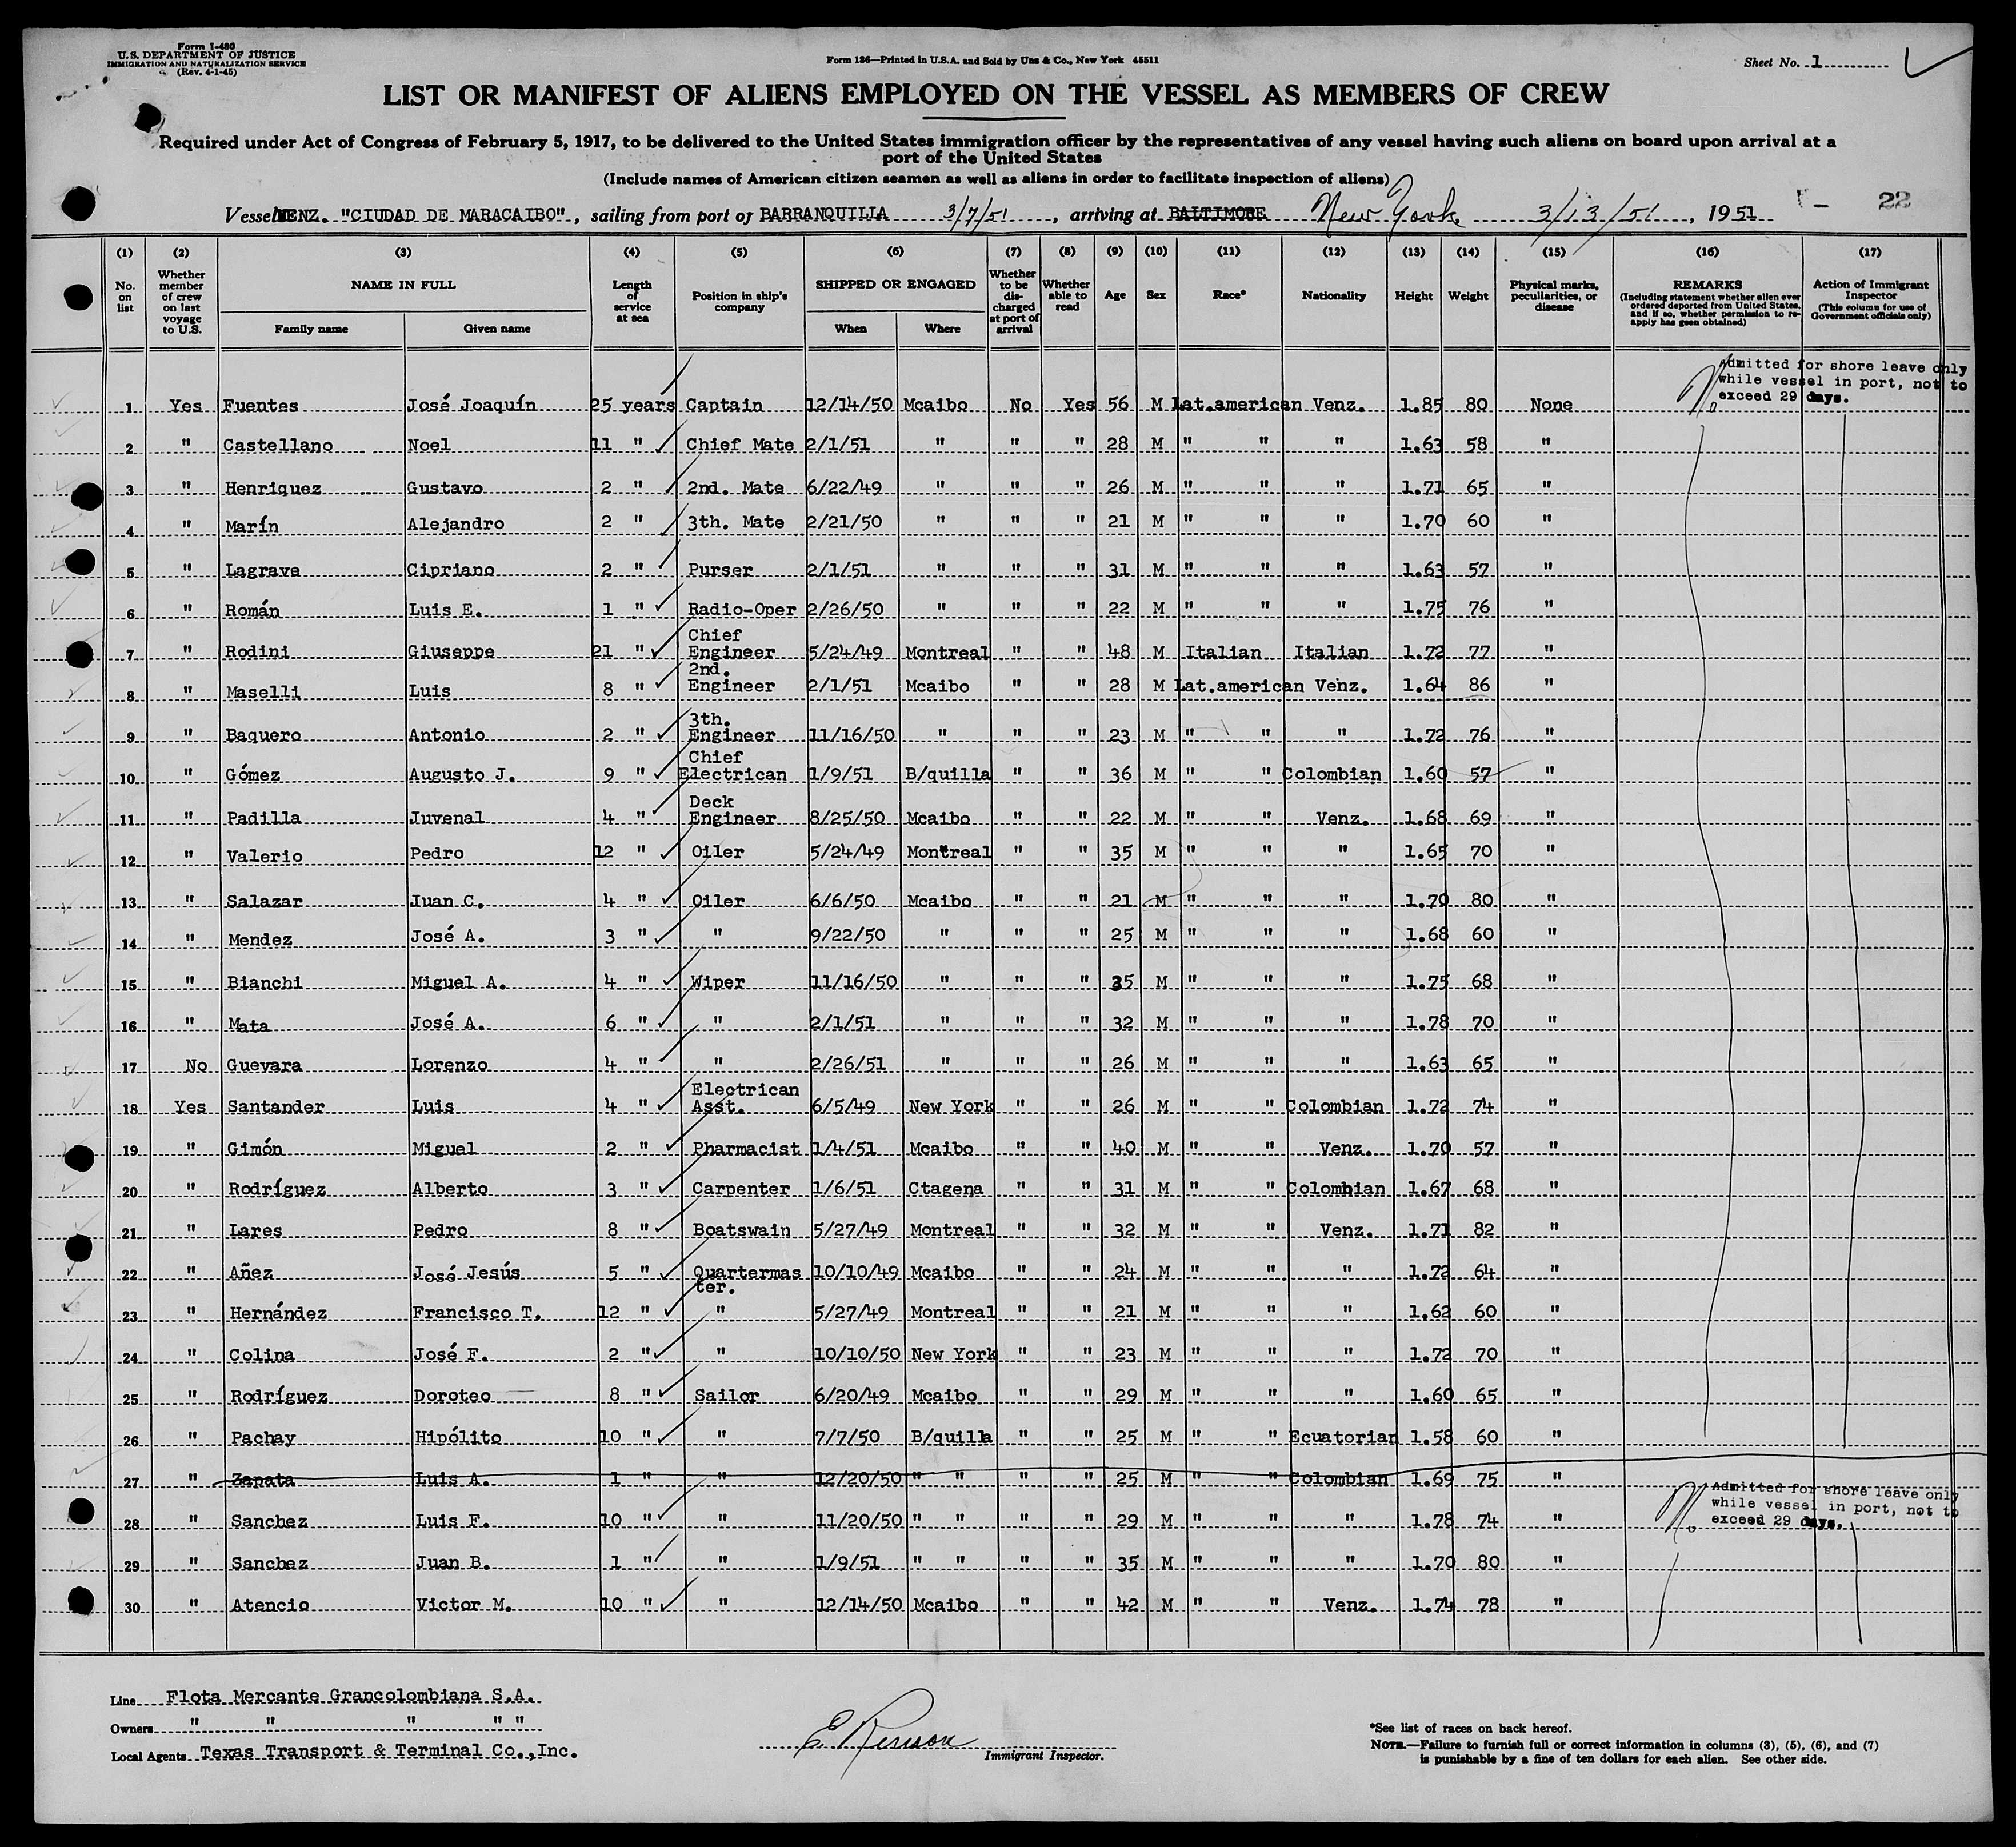 Form I-480
U.S. DEPARTMENT OF JUSTICE
IMMIGRATION AND NATURALIZATION SERVICE
(Rev. 4-1-45)
Form 136—Printed in U.S.A. and Sold by Unz & Co., New York 45511
Sheet No. 1
LIST OR MANIFEST OF ALIENS EMPLOYED ON THE VESSEL AS MEMBERS OF CREW
Required under Act of Congress of February 5, 1917, to be delivered to the United States immigration officer by the representatives of any vessel having such aliens on board upon arrival at a
port of the United States
(Include names of American citizen seamen as well as aliens in order to facilitate inspection of aliens)
Vessel VENZ. "CIUDAD DE MARACAIBO", sailing from port of BARRANQUILLA 3/7/51, arriving at BALTIMORE New York 3/13/51, 1951 - 22
(1) (2) (3) (4) (5) (6) (7) (8) (9) (10) (11) (12) (13) (14) (15) (16) (17)
No. on list
Whether member of crew on last voyage to U.S.
NAME IN FULL
Family name Given name
Length of service at sea
Position in ship's company
SHIPPED OR ENGAGED
When Where
Whether to be discharged at port of arrival
Whether able to read
Age Sex Race* Nationality Height Weight
Physical marks, peculiarities, or disease
REMARKS
(Including statement whether alien ever ordered deported from United States, and if so, whether permission to re-apply has been obtained)
Action of Immigrant Inspector
(This column for use of Government officials only)
Admitted for shore leave only
while vessel in port, not to
exceed 29 days.
No
1 Yes Fuentes José Joaquín 25 years Captain 12/14/50 Mcaibo No Yes 56 M Lat.american Venz. 1.85 80 None
2 " Castellano Noel 11 " Chief Mate 2/1/51 " " " 28 M " " " 1.63 58 "
3 " Henriquez Gustavo 2 " 2nd. Mate 6/22/49 " " " 26 M " " " 1.71 65 "
4 " Marín Alejandro 2 " 3th. Mate 2/21/50 " " " 21 M " " " 1.70 60 "
5 " Lagrave Cipriano 2 " Purser 2/1/51 " " " 31 M " " " 1.63 57 "
6 " Román Luis E. 1 " Radio-Oper 2/26/50 " " " 22 M " " " 1.75 76 "
7 " Rodini Giuseppe 21 " Chief Engineer 5/24/49 Montreal " " 48 M Italian Italian 1.72 77 "
8 " Maselli Luis 8 " 2nd. Engineer 2/1/51 Mcaibo " " 28 M Lat.american Venz. 1.64 86 "
9 " Baquero Antonio 2 " 3th. Engineer 11/16/50 " " " 23 M " " " 1.72 76 "
10 " Gómez Augusto J. 9 " Chief Electrican 1/9/51 B/quilla " " 36 M " " Colombian 1.60 57 "
11 " Padilla Juvenal 4 " Deck Engineer 8/25/50 Mcaibo " " 22 M " " Venz. 1.68 69 "
12 " Valerio Pedro 12 " Oiler 5/24/49 Montreal " " 35 M " " " 1.65 70 "
13 " Salazar Juan C. 4 " Oiler 6/6/50 Mcaibo " " 21 M " " " 1.70 80 "
14 " Mendez José A. 3 " " 9/22/50 " " " 25 M " " " 1.68 60 "
15 " Bianchi Miguel A. 4 " Wiper 11/16/50 " " " 35 M " " " 1.75 68 "
16 " Mata José A. 6 " " 2/1/51 " " " 32 M " " " 1.78 70 "
17 No Guevara Lorenzo 4 " " 2/26/51 " " " 26 M " " " 1.63 65 "
18 Yes Santander Luis 4 " Electrican Asst. 6/5/49 New York " " 26 M " " Colombian 1.72 74 "
19 " Gimón Miguel 2 " Pharmacist 1/4/51 Mcaibo " " 40 M " " Venz. 1.70 57 "
20 " Rodríguez Alberto 3 " Carpenter 1/6/51 Ctagena " " 31 M " " Colombian 1.67 68 "
21 " Lares Pedro 8 " Boatswain 5/27/49 Montreal " " 32 M " " Venz. 1.71 82 "
22 " Añez José Jesús 5 " Quartermas ter. 10/10/49 Mcaibo " " 24 M " " " 1.72 64 "
23 " Hernández Francisco T. 12 " " 5/27/49 Montreal " " 21 M " " " 1.62 60 "
24 " Colina José F. 2 " " 10/10/50 New York " " 23 M " " " 1.72 70 "
25 " Rodríguez Doroteo 8 " Sailor 6/20/49 Mcaibo " " 29 M " " " 1.60 65 "
26 " Pachay Hipólito 10 " " 7/7/50 B/quilla " " 25 M " " Ecuatorian 1.58 60 "
27 " Zapata Luis A. 1 " " 12/20/50 " " " " 25 M " " Colombian 1.69 75 "
Admitted for shore leave only
while vessel in port, not to
exceed 29 days.
No
28 " Sanchez Luis F. 10 " " 11/20/50 " " " " 29 M " " " 1.78 74 "
29 " Sanchez Juan B. 1 " " 1/9/51 " " " " 35 M " " " 1.70 80 "
30 " Atencio Victor M. 10 " " 12/14/50 Mcaibo " " 42 M " " Venz. 1.74 78 "
Line Flota Mercante Grancolombiana S.A.
Owners " " " " "
Local Agents Texas Transport & Terminal Co., Inc.
Immigrant Inspector.
*See list of races on back hereof.
NOTE.—Failure to furnish full or correct information in columns (3), (5), (6), and (7)
is punishable by a fine of ten dollars for each alien. See other side.